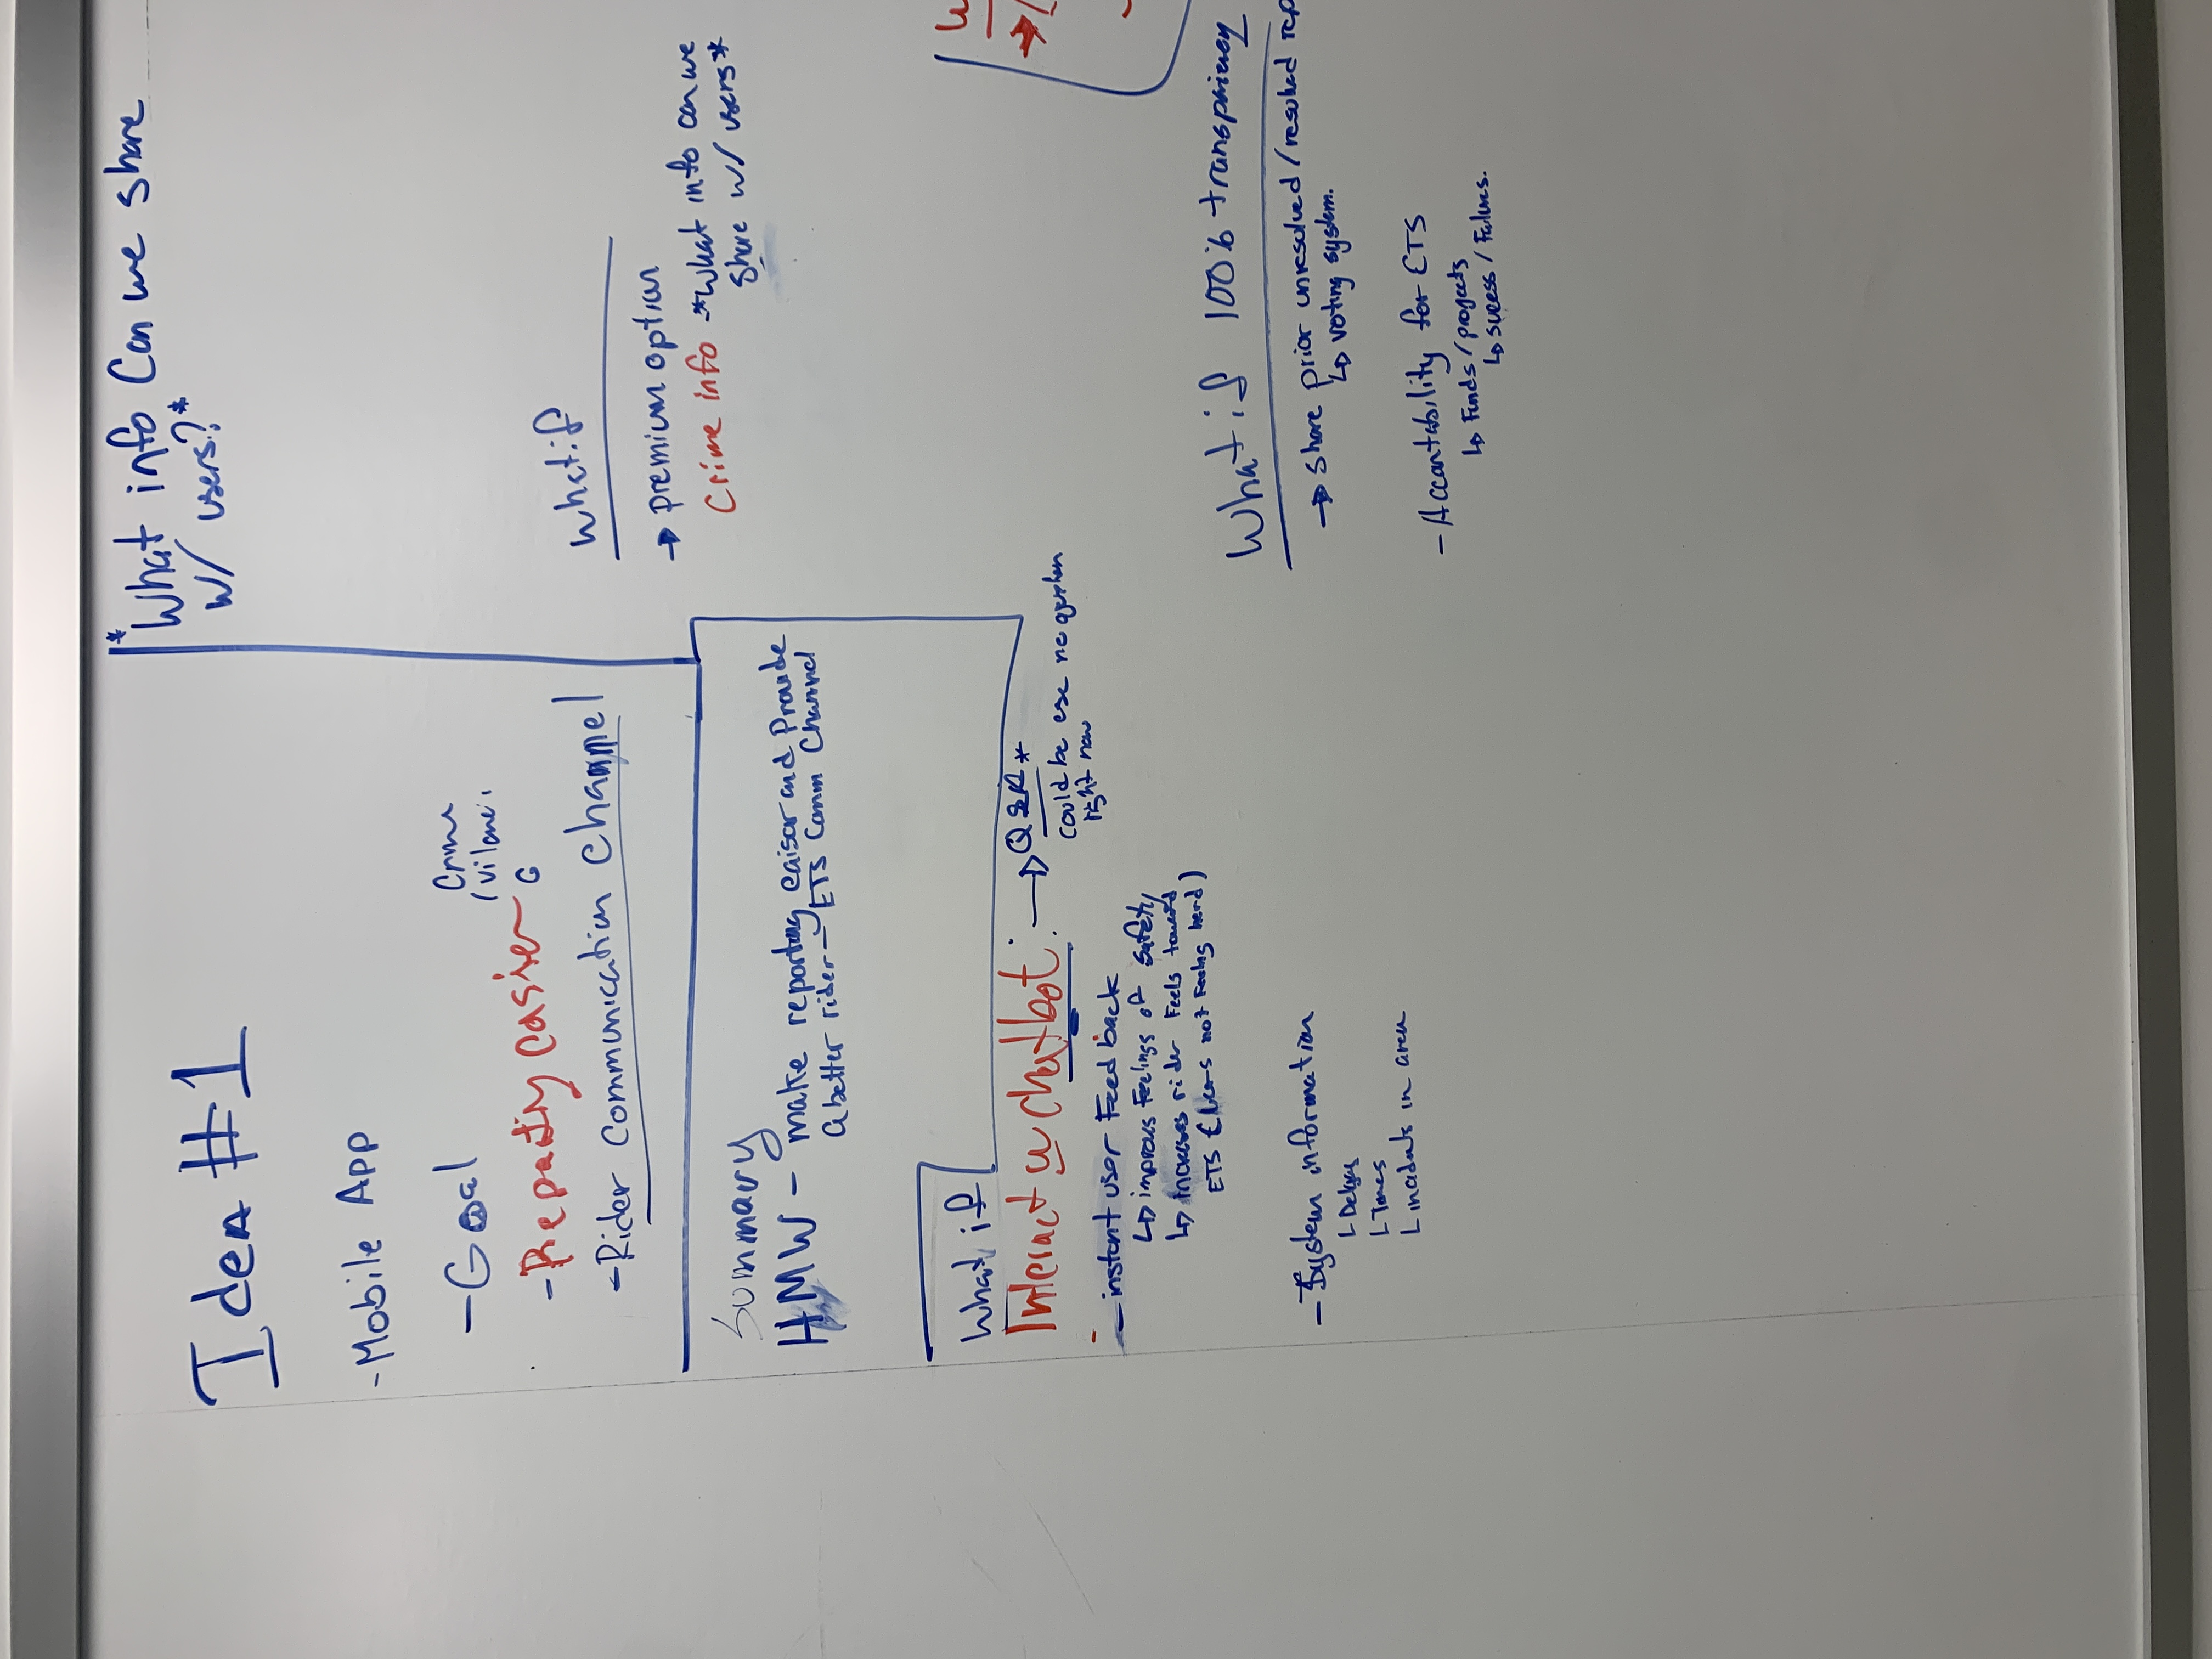 Idea #1
-Mobile App
-Goal
Crime
-Reporting easier
G
-Rider communication channel
Summary
HMW - make reporting eaisor and Provide
a better rider - ETS Comm Channel
What if
Interact w chatbot: → Q&A *
could be use no question
right now
- instant user Feedback
↳ improves Feelings of safety
↳ increases rider Feels toward
ETS (Users not Feeling herd)
- System information
└ Delays
└ Times
└ incidents in area
*What info Can we share
w/ users?*
What if
→ premium option
Crime info → *What info can we
share w/ users*
What if 100% transpariency
→ Share prior unresolved/resolved rep
↳ voting system.
- Accountability for ETS
↳ Funds/projects
↳ sucess/Failures.